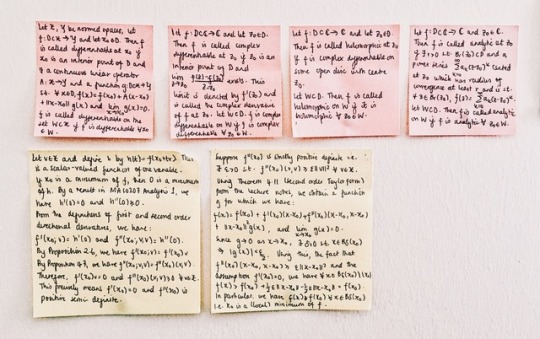 Let X, Y be normed spaces, let
f: D⊂X → Y and let x₀∈D. Then f
is called differentiable at x₀ if
x₀ is an interior point of D and
a continuous linear operator
A: X→Y and a function g: D⊂X→Y
s.t. ∀x∈D, f(x) = f(x₀) + A(x-x₀)
+ ‖x-x₀‖ g(x) and lim g(x)=0.
f is called differentiable on the
set W⊂X if f is differentiable ∀x₀
∈ W.
Let f: D⊂C → C and let z₀∈D.
Then f is called complex
differentiable at z₀ if z₀ is an
interior point of D and
lim f(z)-f(z₀) exists. This
z→z₀ z-z₀
limit is denoted by f'(z₀) and
is called the complex derivative
of f at z₀. Let W⊂D. f is complex
differentiable on W if f is complex
differentiable ∀ z₀∈W.
Let f: D⊂C → C and let z₀∈D.
Then f is called holomorphic at z₀ if
f is complex differentiable on
some open disc with centre
z₀.
Let W⊂D. Then f is called
holomorphic on W if it is
holomorphic ∀ z₀∈W.
Let f: D⊂C → C and let z₀∈D.
Then f is called analytic at z₀
if
power series
at z₀ which has radius of
convergence at least r and is s.t.
Let W⊂D. Then f is called analytic
on W if f is analytic ∀ z₀∈W.
Let v∈X and define h by h(t) = f(x₀+tv). This
is a scalar-valued function of one variable.
If x₀ is a minimum of f, then 0 is a minimum
of h. By a result in Analysis 1, we
have h'(0)=0 and h''(0)≥0.
From the definitions of first and second order
directional derivatives, we have:
f'(x₀;v) = h'(0) and f''(x₀;v,v) = h''(0).
By Proposition 2.6, we have f'(x₀;v) = f'(x₀)v
By Proposition 4.7, we have f''(x₀;v,v) = f''(x₀)(v,v).
Therefore, f'(x₀)v=0 and f''(x₀)(v,v)≥0 ∀ v∈X.
This precisely means f'(x₀)=0 and f''(x₀) is
positive semi definite.
Suppose f''(x₀) is strictly positive definite i.e.
∃ ε>0 s.t. f''(x₀)(v,v) ≥ ε‖v‖² ∀ v∈X.
Using Theorem 4.11 (second order Taylor form)
from the lecture notes, we obtain a function
g for which we have:
f(x) = f(x₀) + f'(x₀)(x-x₀) + f''(x₀)(x-x₀, x-x₀)
+ ‖x-x₀‖² g(x), and lim g(x)=0.
Since g→0 as x→x₀, ∃ δ>0 s.t. x∈B
⇒ |g(x)| Using this, the fact that
f''(x₀)(x-x₀, x-x₀) ≥ ε‖x-x₀‖² and the
assumption f'(x₀)=0, we have ∀
In particular, we have f(x) ≥ f(x₀) ∀ x∈
i.e. x₀ is a (local) minimum of f.